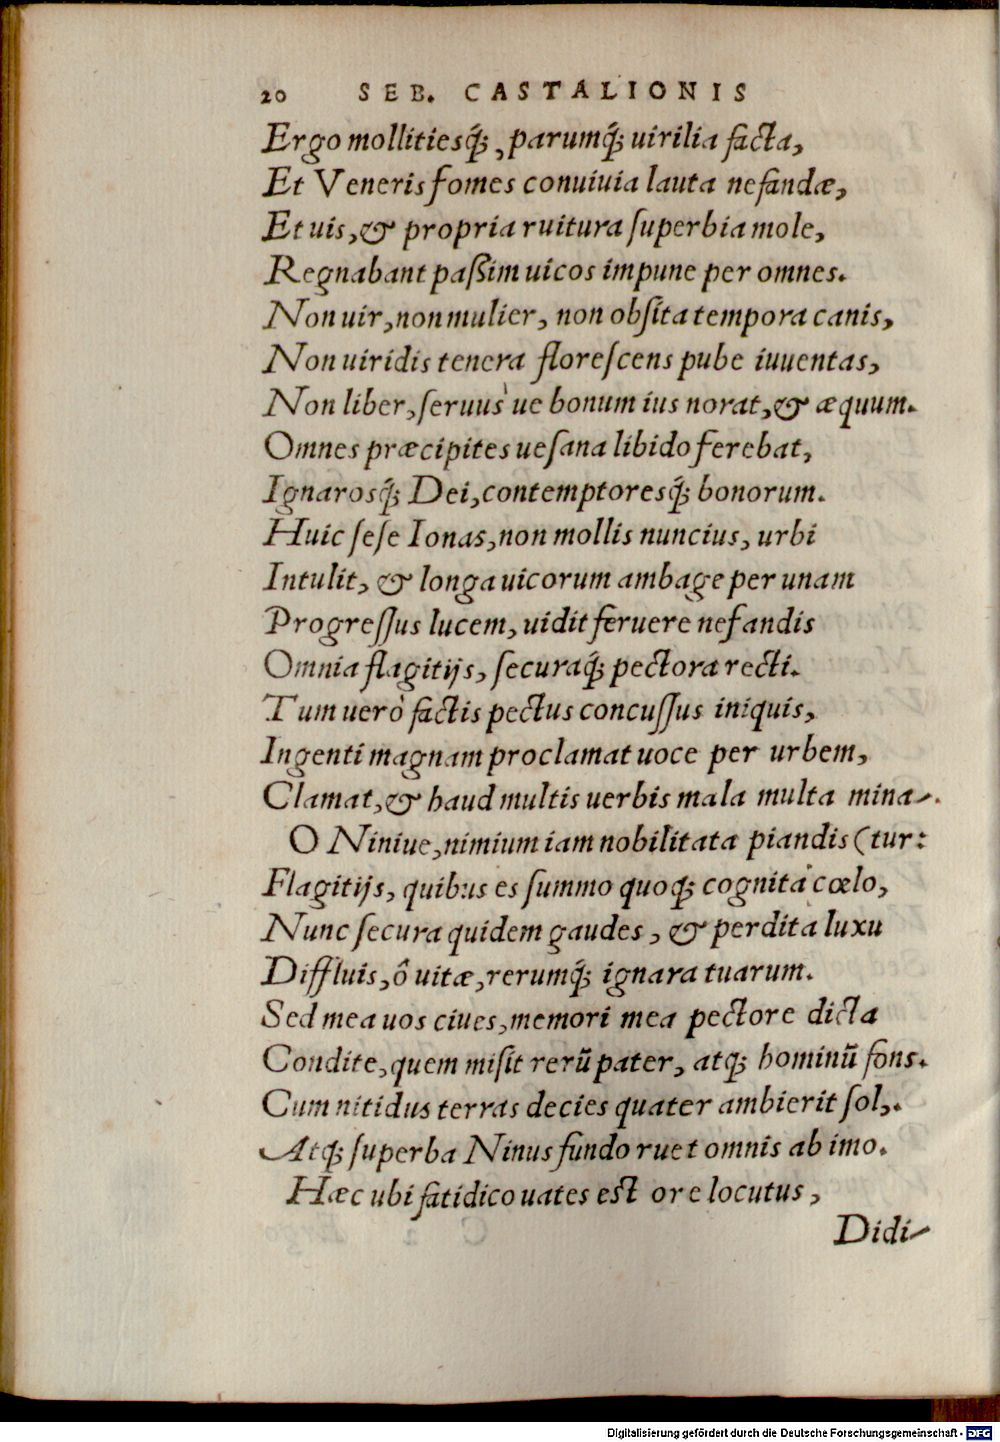 20 SEB. CASTALIONIS
Ergo mollitiesq́;, parumq́; uirilia facta,
Et Veneris fomes conuiuia lauta nefandæ,
Et uis, & propria ruitura ſuperbia mole,
Regnabant paßim uicos impune per omnes.
Non uir, non mulier, non obſita tempora canis,
Non uiridis tenera floreſcens pube iuuentas,
Non liber, ſeruus ùe bonum ius norat, & æquum.
Omnes præcipites ueſana libido ferebat,
Ignarosq́; Dei, contemptoresq́; bonorum.
Huic ſeſe Ionas, non mollis nuncius, urbi
Intulit, & longa uicorum ambage per unam
Progreſſus lucem, uidit feruere nefandis
Omnia flagitijs, ſecuraq́; pectora recti.
Tum uerò factis pectus concuſſus iniquis,
Ingenti magnam proclamat uoce per urbem,
Clamat, & haud multis uerbis mala multa mina-.
O Niniue, nimium iam nobilitata piandis (tur:
Flagitijs, quibus es ſummo quoq; cognita cœlo,
Nunc ſecura quidem gaudes, & perdita luxu
Diffluis, ô uitæ, rerumq́; ignara tuarum.
Sed mea uos ciues, memori mea pectore dicta
Condite, quem miſit rerũ pater, atq; hominũ fons.
Cum nitidus terras decies quater ambierit ſol,.
Atq; ſuperba Ninus fundo ruet omnis ab imo.
Hæc ubi fatidico uates eſt ore locutus,
Didi-
Digitalisierung gefördert durch die Deutsche Forschungsgemeinschaft - DFG